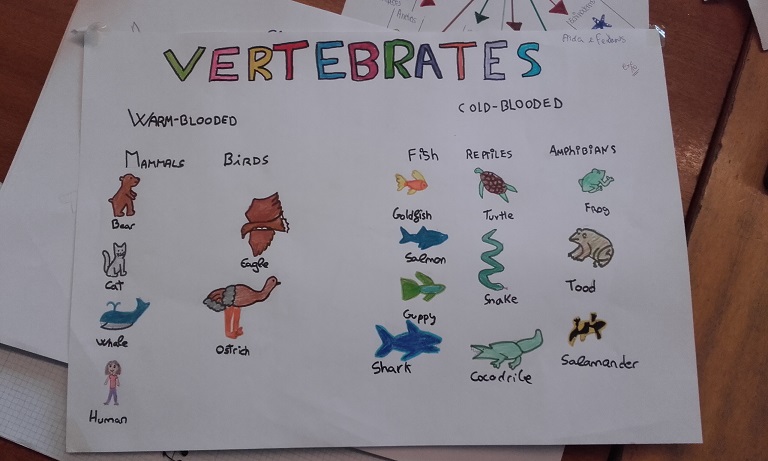 VERTEBRATES
WARM-BLOODED
COLD-BLOODED
MAMMALS
BIRDS
Fish
REPTILES
AMPHIBIANS
Bear
Cat
Whale
Human
Eagle
Ostrich
Goldfish
Salmon
Guppy
Shark
Turtle
Snake
Cocodrile
Frog
Tood
Salamander